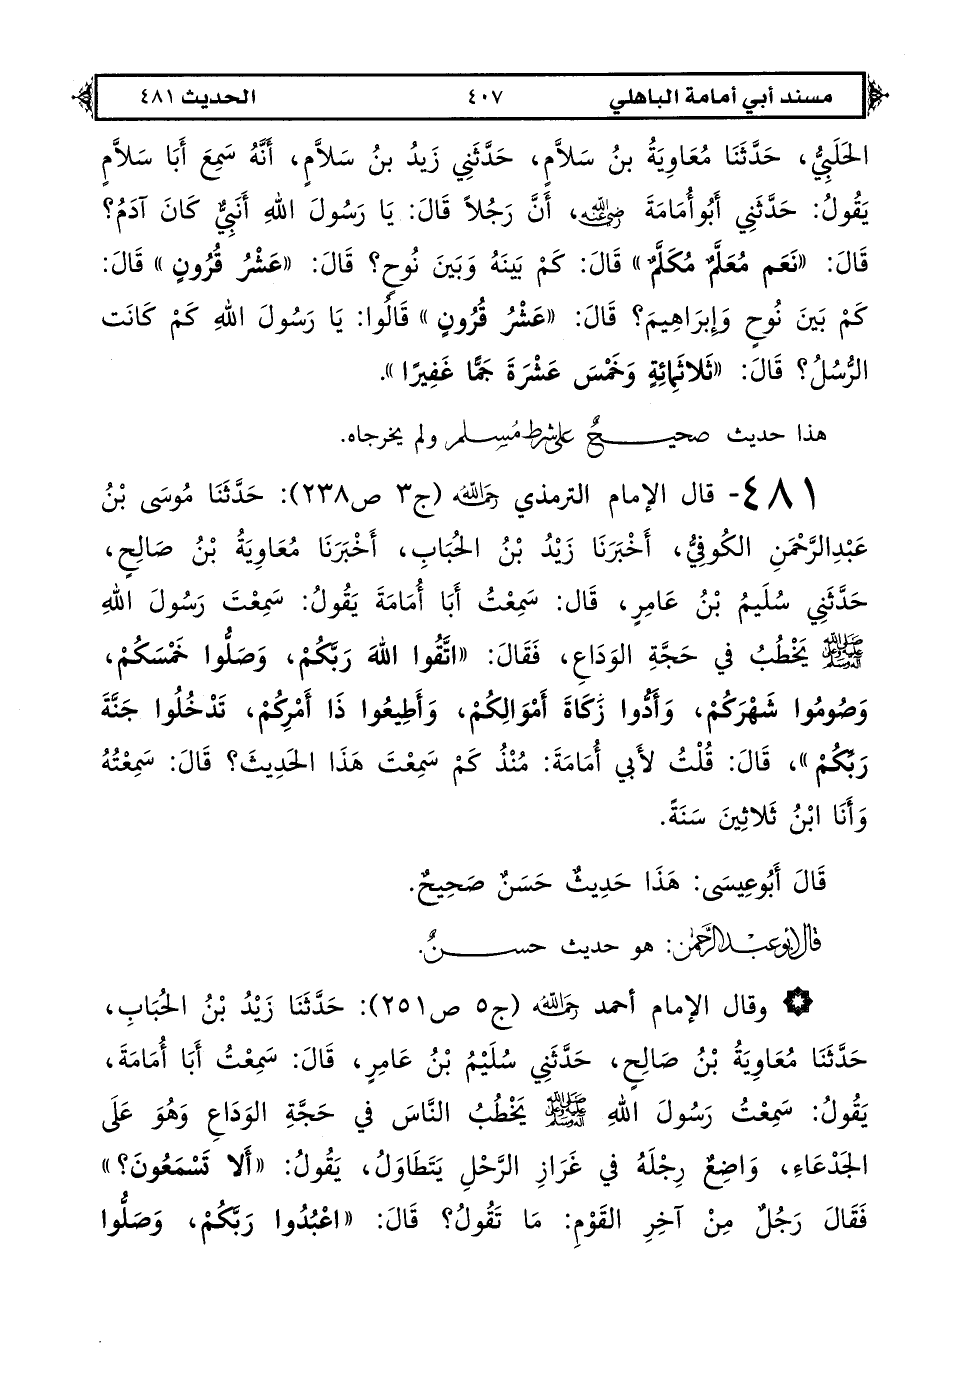 مسند أبي أمامة الباهلي ٤٠٧ الحديث ٤٨١
الحَلَبِيُّ، حَدَّثَنَا مُعَاوِيَةُ بنُ سَلاَّمٍ، حَدَّثَنِي زَيدُ بنُ سَلاَّمٍ، أَنَّهُ سَمِعَ أَبَا سَلاَّمٍ
يَقُولُ: حَدَّثَنِي أَبُوأُمَامَةَ رضي الله عنه، أَنَّ رَجُلاً قَالَ: يَا رَسُولَ اللهِ أَنَبِيٌّ كَانَ آدَمُ؟
قَالَ: «نَعَم مُعَلَّمٌ مُكَلَّمٌ» قَالَ: كَمْ بَينَهُ وَبَينَ نُوحٍ؟ قَالَ: «عَشْرُ قُرُونٍ» قَالَ:
كَم بَينَ نُوحٍ وَإِبرَاهِيمَ؟ قَالَ: «عَشْرُ قُرُونٍ» قَالُوا: يَا رَسُولَ اللهِ كَمْ كَانَت
الرُّسُلُ؟ قَالَ: «ثَلاثمِائِةٍ وَخَمْسَ عَشْرَةَ جَمًّا غَفِيرًا».
هذا حديث صحيحٌ على شرط مُسلم ولم يخرجاه.
٤٨١- قال الإمام الترمذي رحمه الله (ج٣ ص٢٣٨): حَدَّثَنَا مُوسَى بْنُ
عَبْدِالرَّحْمَنِ الكُوفِيُّ، أَخْبَرَنَا زَيْدُ بْنُ الحُبَابِ، أَخْبَرَنَا مُعَاوِيَةُ بْنُ صَالِحٍ،
حَدَّثَنِي سُلَيمُ بْنُ عَامِرٍ، قَال: سَمِعْتُ أَبَا أُمَامَةَ يَقُولُ: سَمِعْتَ رَسُولَ اللهِ
ﷺ يَخْطُبُ فِي حَجَّةِ الوَدَاعِ، فَقَالَ: «اتَّقُوا اللهَ رَبَّكُمْ، وَصَلُّوا خَمْسَكُمْ،
وَصُومُوا شَهْرَكُمْ، وَأَدُّوا زَكَاةَ أَمْوَالِكُمْ، وَأَطِيعُوا ذَا أَمْرِكُمْ، تَدْخُلُوا جَنَّةَ
رَبِّكُمْ»، قَالَ: قُلْتُ لأَبِي أُمَامَةَ: مُنْذُ كَمْ سَمِعْتَ هَذَا الحَدِيثَ؟ قَالَ: سَمِعْتُهُ
وَأَنَا ابْنُ ثَلاثِينَ سَنَةً.
قَالَ أَبُوعِيسَى: هَذَا حَدِيثٌ حَسَنٌ صَحِيحٌ.
قال أبوعبدالرحمن: هو حديث حسنٌ.
وقال الإمام أحمد رحمه الله (ج٥ ص٢٥١): حَدَّثَنَا زَيْدُ بْنُ الحُبَابِ،
حَدَّثَنَا مُعَاوِيَةُ بْنُ صَالِحٍ، حَدَّثَنِي سُلَيْمُ بْنُ عَامِرٍ، قَالَ: سَمِعْتُ أَبَا أُمَامَةَ،
يَقُولُ: سَمِعْتُ رَسُولَ اللهِ ﷺ يَخْطُبُ النَّاسَ فِي حَجَّةِ الوَدَاعِ وَهُوَ عَلَى
الجَدْعَاءِ، وَاضِعٌ رِجْلَهُ فِي غَرَازِ الرَّحْلِ يَتَطَاوَلُ، يَقُولُ: «أَلا تَسْمَعُونَ؟»
فَقَالَ رَجُلٌ مِنْ آخِرِ القَوْمِ: مَا تَقُولُ؟ قَالَ: «اعْبُدُوا رَبَّكُمْ، وَصَلُّوا